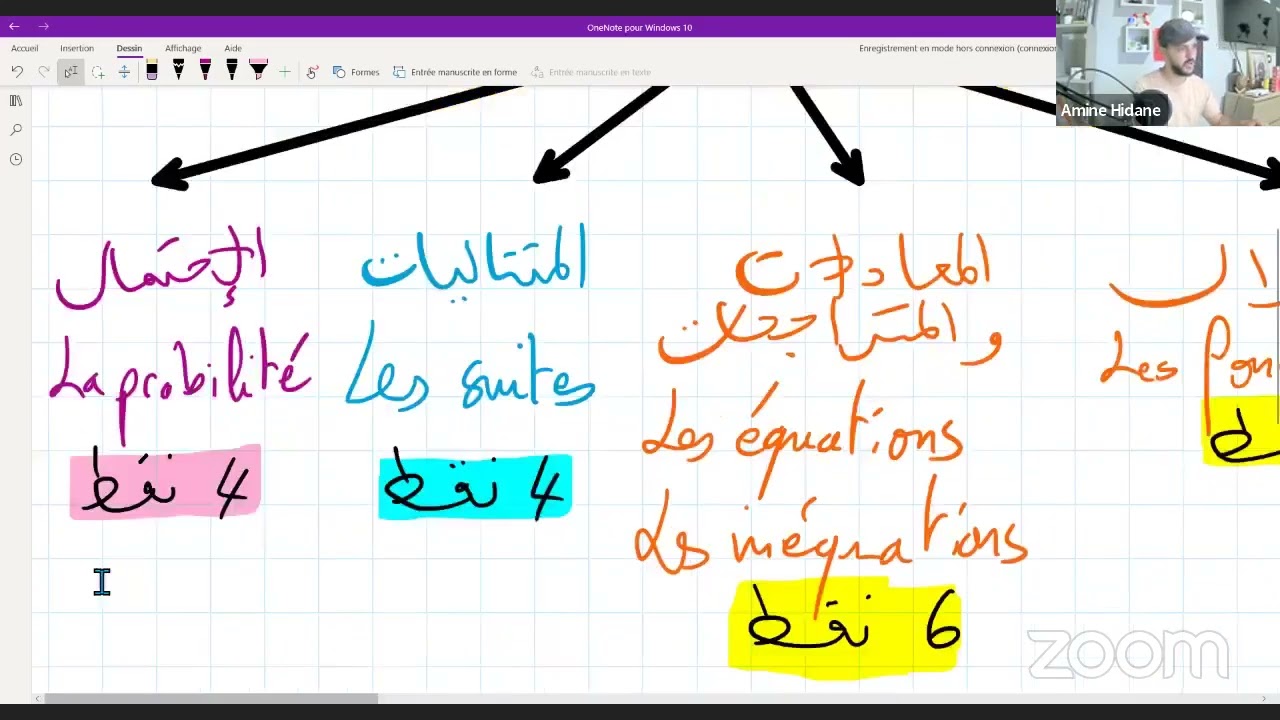 OneNote pour Windows 10
Accueil Insertion Dessin Affichage Aide
Enregistrement en mode hors connexion (connexion
Formes Entrée manuscrite en forme Entrée manuscrite en texte
Amine Hidane
الإحتمال
La probabilité
4 نقط
المتتاليات
Les suites
4 نقط
المعادلات
والمتراجحات
Les équations
Les inéquations
6 نقط
Les fon
zoom